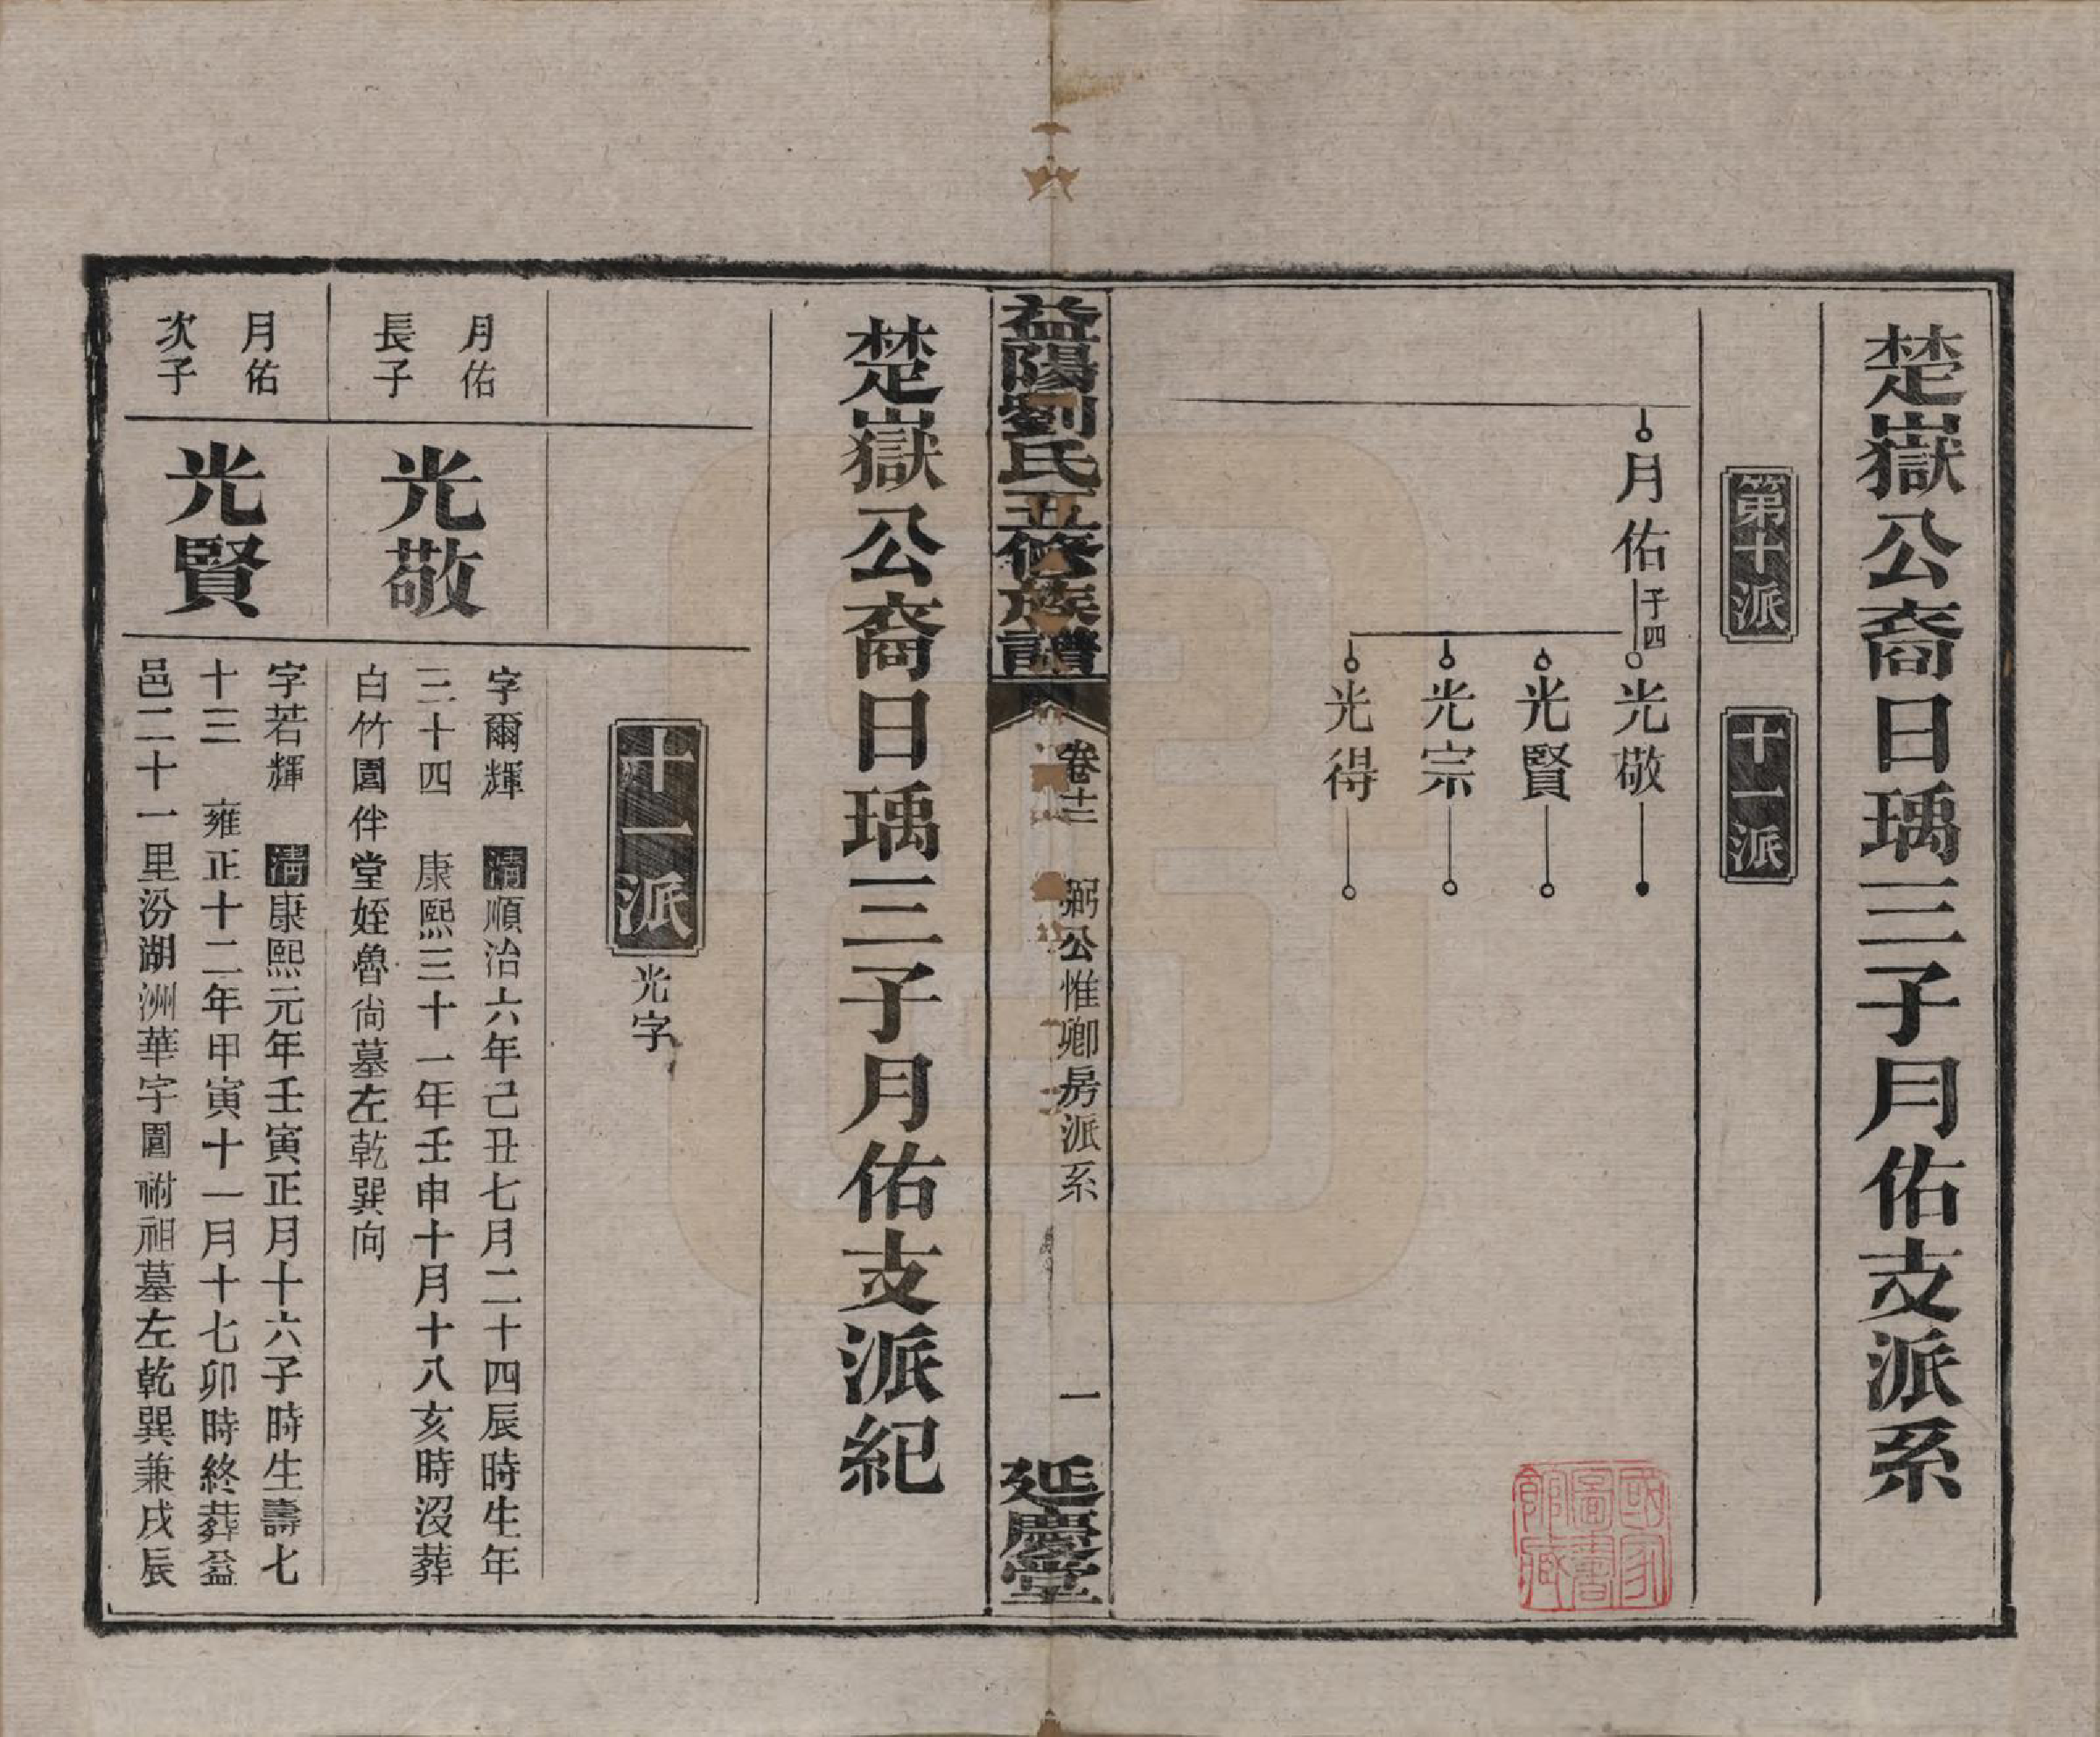 楚嶽公裔日瑀三子月佑支派系
第十派
十一派
月佑子四
光敬
光賢
光宗
光得
國家圖書館藏
益陽劉氏五修族譜
卷十二 弼公惟卿房派系
一
延慶堂
楚嶽公裔日瑀三子月佑支派紀
十一派光字
月佑長子
光敬
字爾輝 清順治六年己丑七月二十四辰時生年
三十四 康熙三十一年壬申十月十八亥時沒葬
白竹園伴堂姪魯尚墓左乾巽向
月佑次子
光賢
字若輝 清康熙元年壬寅正月十六子時生壽七
十三 雍正十二年甲寅十一月十七卯時終葬益
邑二十一里汾湖洲華字圍祔祖墓左乾巽兼戌辰